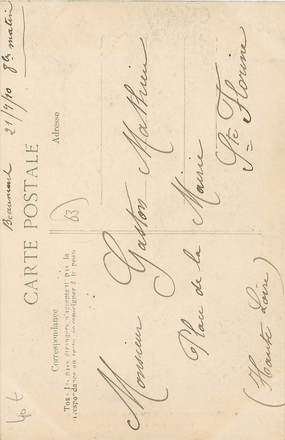 Beaumont 21/7/10 8h matin
CARTE POSTALE
Correspondance
Adresse
Tous les pays étrangers n'acceptent pas la
correspondance au recto se renseigner à la poste
63
Monsieur Gaston Mathieu
Place de la Mairie
Ste Florine
(Haute Loire)